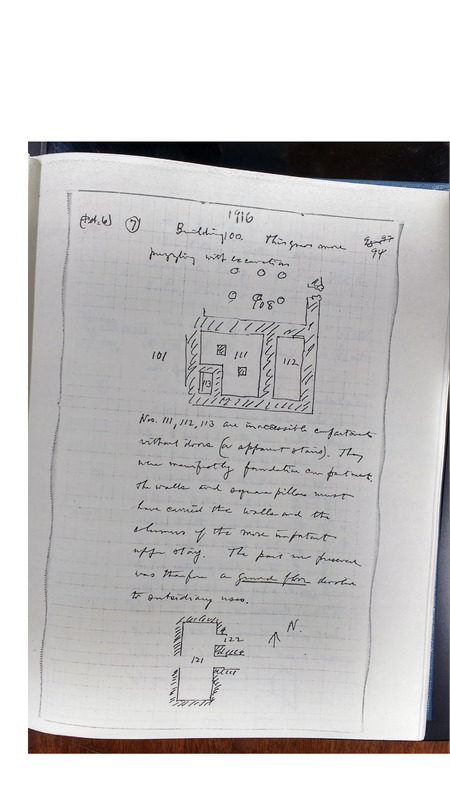 (Feb. 6) (7) 1916
Building 100. This grows more
puzzling with excavation
94
108
101 111 112
113
Nos. 111, 112, 113 are inaccessible compartments
without doors (or apparent stairs). They
were manifestly foundation compartments.
The walls and square pillars must
have carried the walls and the
columns of the more important
upper story. The part now preserved
was therefore a ground floor devoted
to subsidiary uses.
N.
122
121